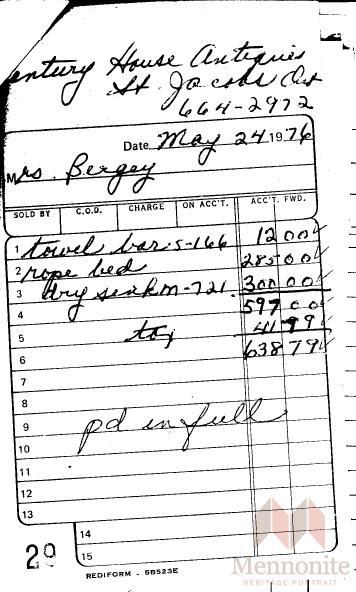 entury House Antiques
St. Jacobs Ont
664-2972
Date May 24 1976
Mrs. Bergey
SOLD BY C.O.D. CHARGE ON ACC'T. ACC'T. FWD.
1 towel bar S-166 12 00
2 rope bed 285 00
3 dry sink M-721 300 00
4 597 00
5 tax 41 79
6 638 79
7
8
9 pd in full
10
11
12
13
14
15
29
REDIFORM - 5B523E
Mennonite
HERITAGE PORTRAIT